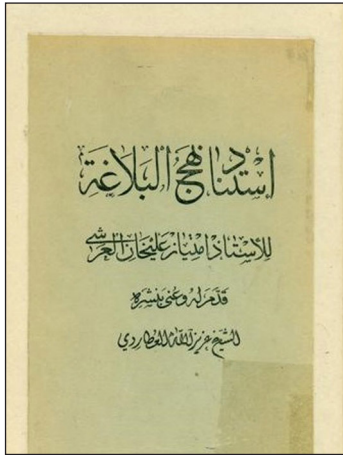 استناد نهج البلاغة
للأستاذ امتياز عليخان العرشي
قدم له وعنى بنشره
الشيخ عزيز الله العطاردي